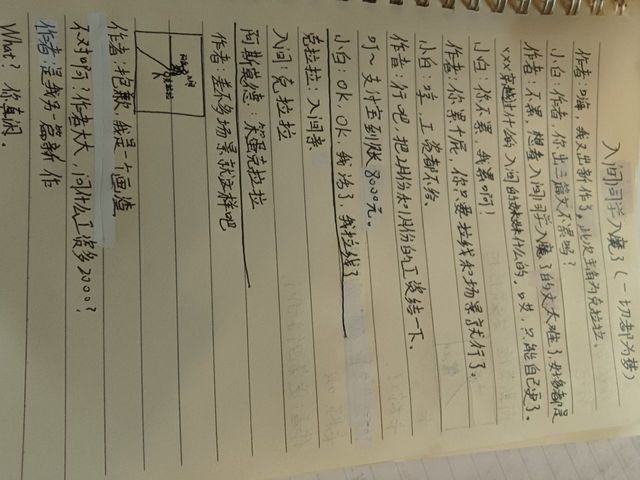 入间同学入魔了(一切都为梦)
作者:嗨,我又出新作了。此次主角为克拉拉。
小白:作者,你出三篇文不累吗?
作者:不累,想看入间同学入魔了的文太难了,好多都是
《xx穿越过什么入间的妹妹什么的,哎,只能自己更了。
小白:你不累,我累啊!
作者:你累个屁,你只要拉线和场景就行了。
小白:哼,工资都不给。
作者:行吧,把2月份和1月份的工资结一下。
叮~支付宝到账8000元。
小白:OK,OK,钱活了,我拉线了
克拉拉:入间亲
入间:克拉拉
阿斯莫德:笨蛋克拉拉
作者:差不多场景就这样吧
作者:抱歉,我是一个画渣
不对啊?作者大大,问什么工资多2000?
作者:这我另一篇新作
What?你真闲。